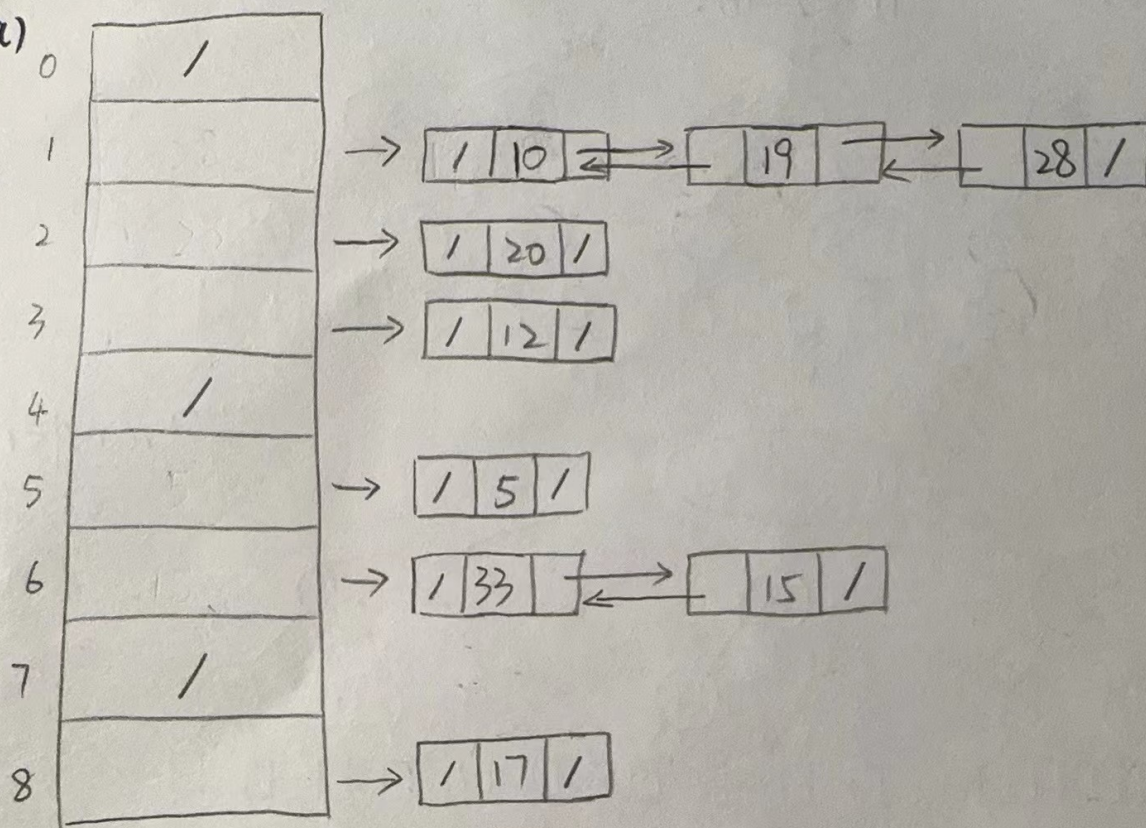 a)
0 /
1 → / 10 19 28 /
2 → / 20 /
3 → / 12 /
4 /
5 → / 5 /
6 → / 33 15 /
7 /
8 → / 17 /